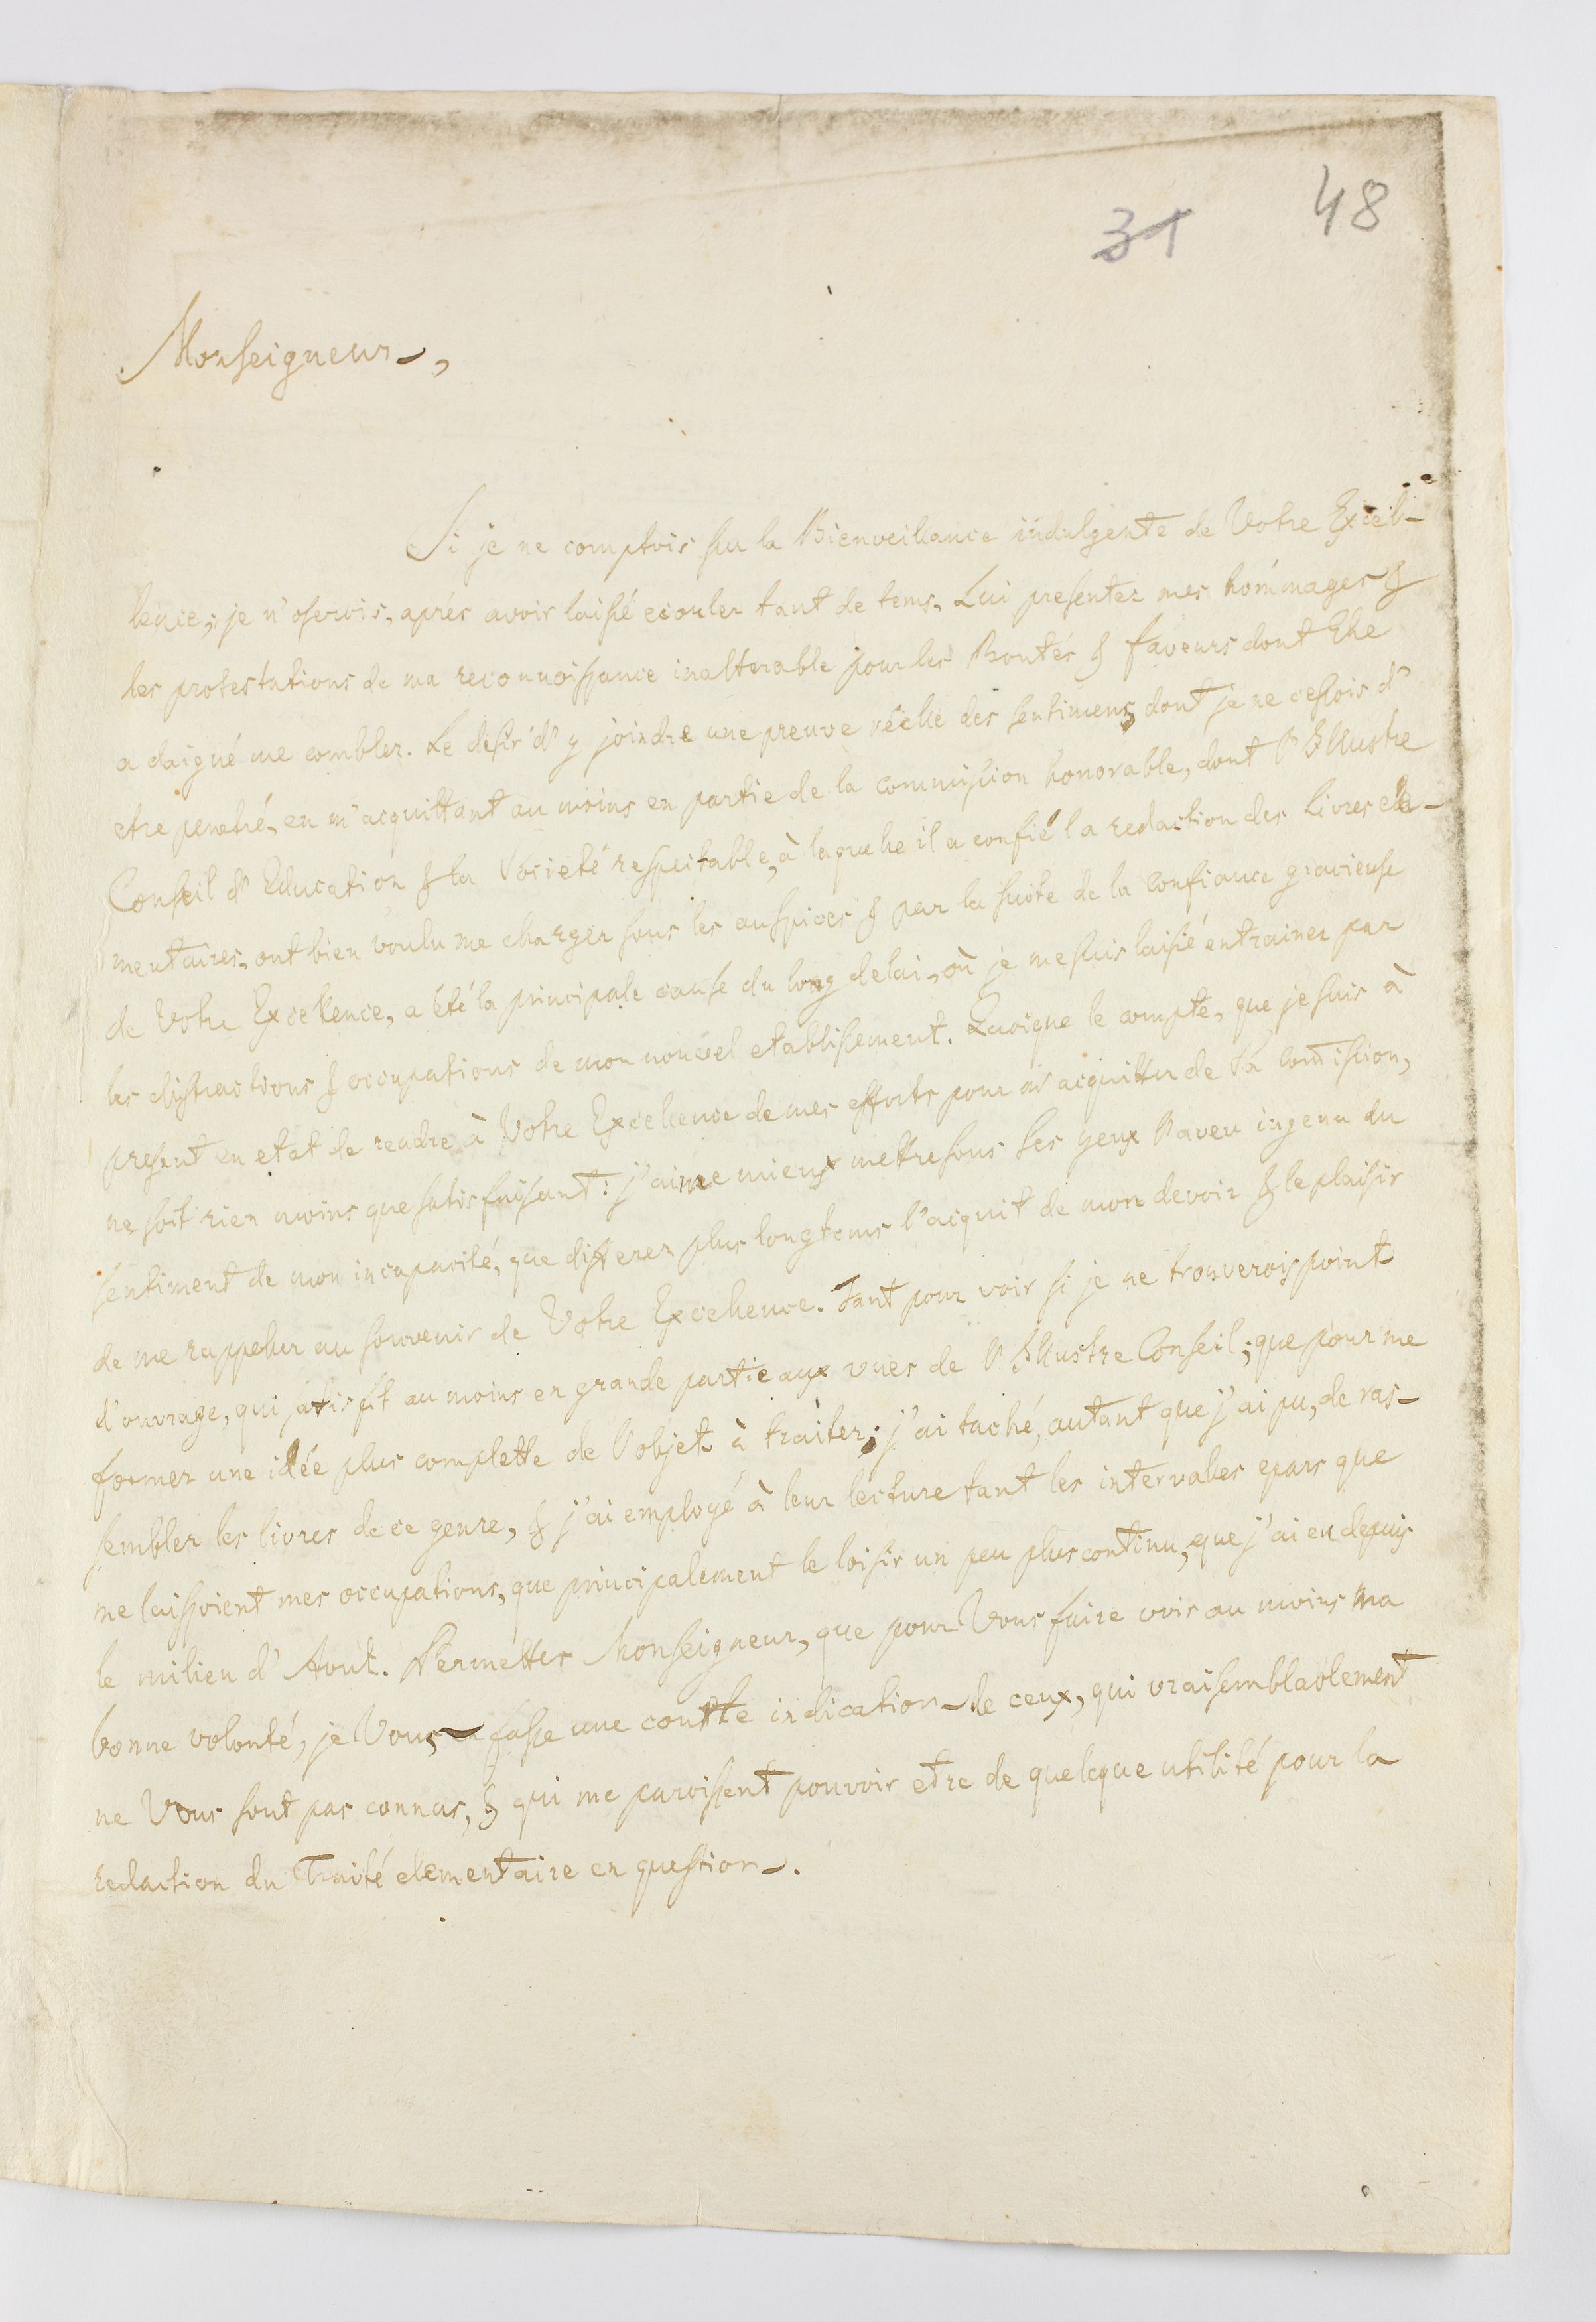 31 48
Monseigneur,
Si je ne comptois sur la Bienveillance indulgente de Votre Excel-
lence; je n'oserois, aprés avoir laissé ecouler tant de tems, Lui presenter mes hommages &
les protestations de ma reconnoissance inalterable pour les Bontés & faveurs dont Elle
a daigné me combler. Le desir d'y joindre une preuve réelle des sentimens dont je ne cessois d'
etre penetré, en m'acquittant au moins en partie de la commission honorable, dont l'Illustre
Conseil d'Education & la Societé respectable, à laquelle il a confié la redaction des Livres ele-
mentaires, ont bien voulu me charger sous les auspices & par la suite de la confiance gracieuse
de Votre Excellence, a été la principale cause du long delai, où je me suis laissé entrainer par
les distractions & occupations de mon nouvel etablissement. Quoique le compte, que je suis à
present en etat de rendre à Votre Excellence de mes efforts pour m'acquitter de Sa commission,
ne soit rien moins que satisfaisant: j'aime mieux mettre sous Ses yeux l'aveu ingenu du
sentiment de mon incapacité, que differer plus longtems l'acquit de mon devoir & le plaisir
de me rappeller au souvenir de Votre Excellence. Tant pour voir si je ne trouverois point
d'ouvrage, qui satisfit au moins en grande partie aux vues de l'Illustre Conseil; que pour me
former une idée plus complette de l'objet à traiter; j'ai taché, autant que j'ai pu, de ras-
sembler les livres de ce genre, & j'ai employé à leur lecture tant les intervalles epars que
me laissoient mes occupations, que principalement le loisir un peu plus continu, que j'ai eu depuis
le milieu d'Août. Permettes Monseigneur, que pour Vous faire voir au moins ma
bonne volonté, je Vous fasse une courte indication de ceux, qui vraisemblablement
ne Vous sont pas connus, & qui me paroissent pouvoir etre de quelque utilité pour la
redaction du Traité elementaire en question.